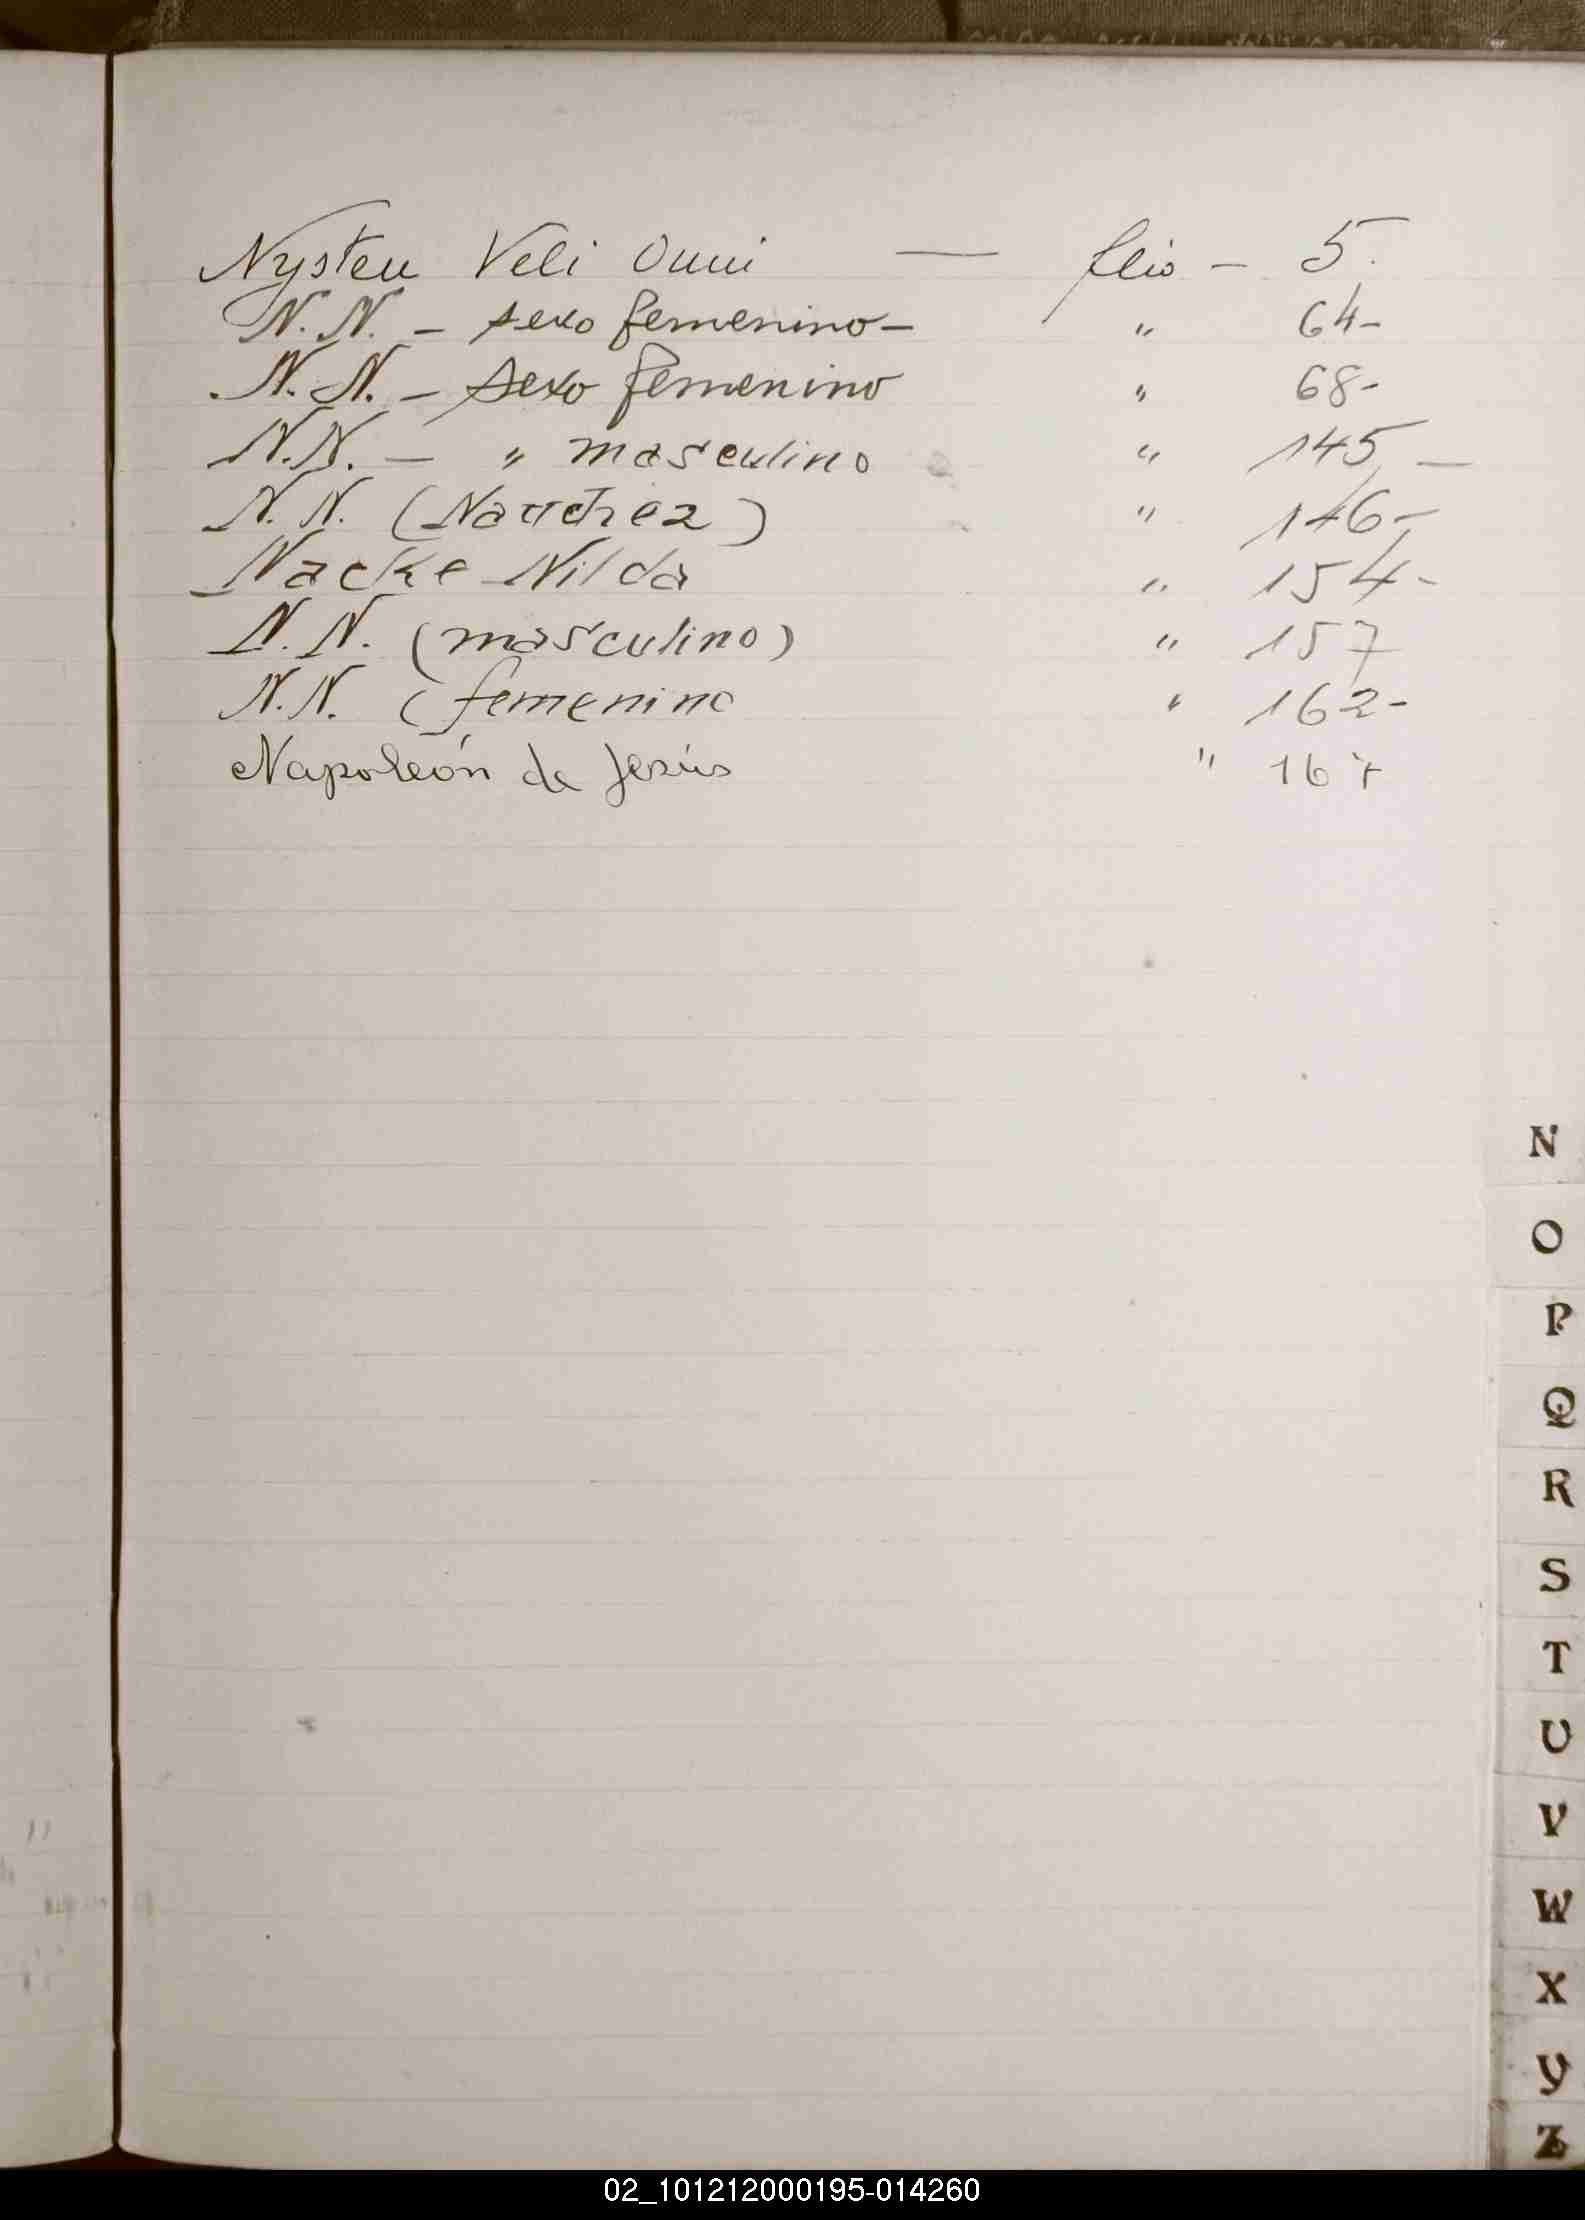 Nysten Veli Onni — flio - 5.
N. N. - sexo femenino - " 64-
N. N. - sexo femenino " 68-
N. N. - " masculino " 145-
N. N. ( ) " 146-
Nacke Nilda " 154-
N. N. (masculino) " 157
N. N. (femenino " 162-
Napoleón de Jesús " 167
N
O
P
Q
R
S
T
U
V
W
X
Y
Z
02_101212000195-014260